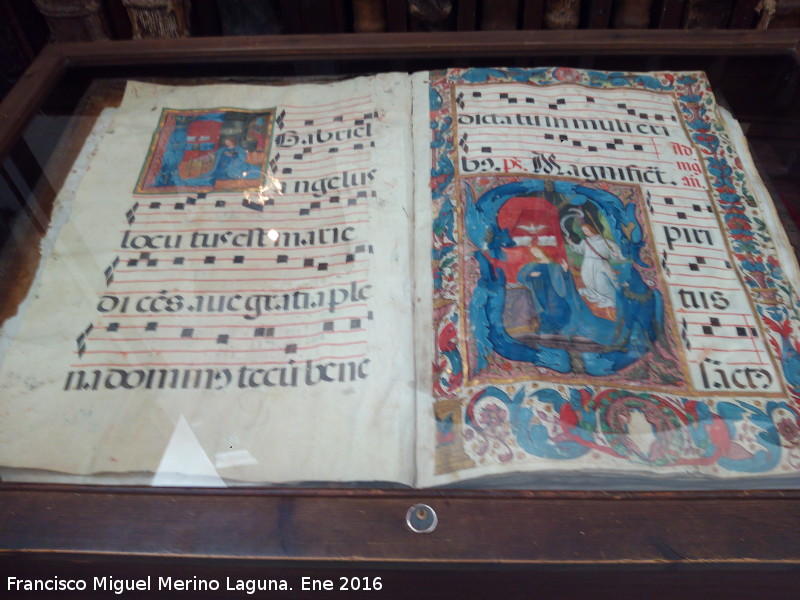 Gabriel
angelus
locu tus est marie
di cēs. ave gratia ple
na dominꝰ tecū bene
dicta tu in muli eri
bꝰ. ps Magnificat.
Ad
piri
tus
sācto
Francisco Miguel Merino Laguna. Ene 2016